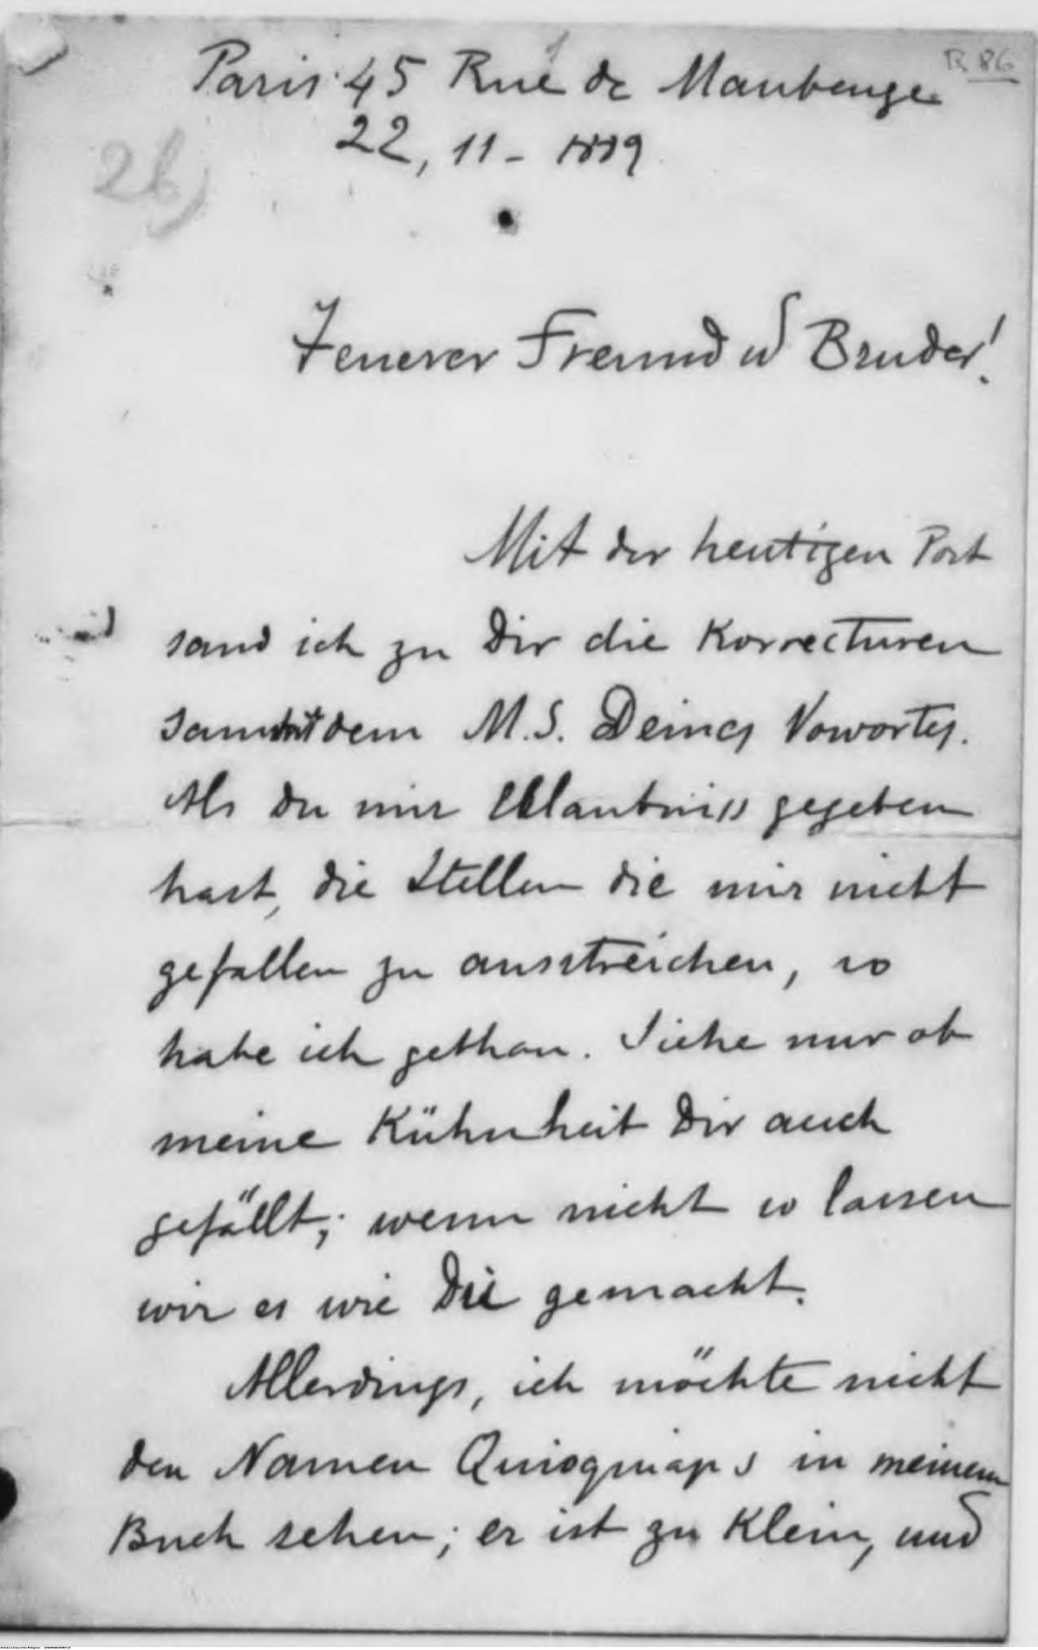 R 86
Paris 45 Rue de Maubeuge
22, 11 - 1889
26)
Teuerer Freund u Bruder!
Mit der heutigen Post
sand ich zu Dir die Korrecturen
sammt dem M.S. Deines Vowortes.
Als du mir Erlaubniss gegeben
hast, die Stellen die mir nicht
gefallen zu ausstreichen, so
habe ich gethan. Siehe nur ob
meine Kühnheit Dir auch
gefällt; wenn nicht so lassen
wir es wie Du gemacht.
Allerdings, ich möchte nicht
den Namen in meinem
Buch sehen; er ist zu Klein, und